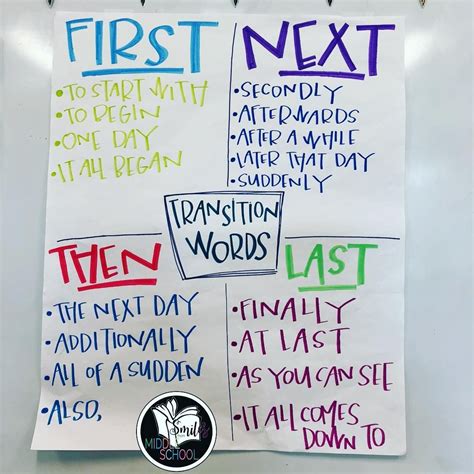 FIRST
• TO START WITH
• TO BEGIN
• ONE DAY
• IT ALL BEGAN
NEXT
• SECONDLY
• AFTERWARDS
• AFTER A WHILE
• LATER THAT DAY
• SUDDENLY
TRANSITION
WORDS
THEN
• THE NEXT DAY
• ADDITIONALLY
• ALL OF A SUDDEN
• ALSO,
LAST
• FINALLY
• AT LAST
• AS YOU CAN SEE
• IT ALL COMES
DOWN TO
MIDDLE
SCHOOL